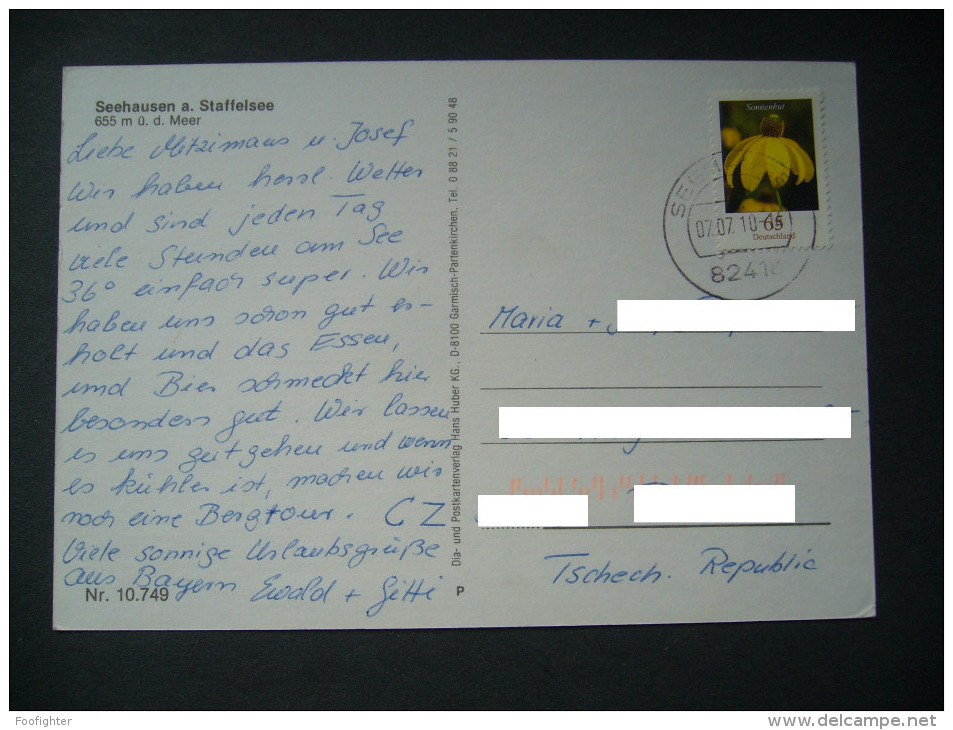 Seehausen a. Staffelsee
655 m ü. d. Meer
Liebe Mitzimaus u. Josef
Wir haben herrl. Wetter
und sind jeden Tag
viele Stunden am See
36° einfach super. Wir
haben uns schon gut er-
holt und das Essen,
und Bier schmeckt hier
besonders gut. Wir lassen
es uns gutgehen und wenn
es kühler ist, machen wir
noch eine Bergtour.
Viele sonnige Urlaubsgrüße
aus Bayern Ewald + Gitti
Nr. 10.749
P
Dia- und Postkartenverlag Hans Huber KG., D-8100 Garmisch-Partenkirchen, Tel. 0 88 21 / 5 90 48
Sonnenhut
65
Deutschland
07.07.10
82418
Maria +
CZ
Tschech. Republic
Foofighter
www.delcampe.net